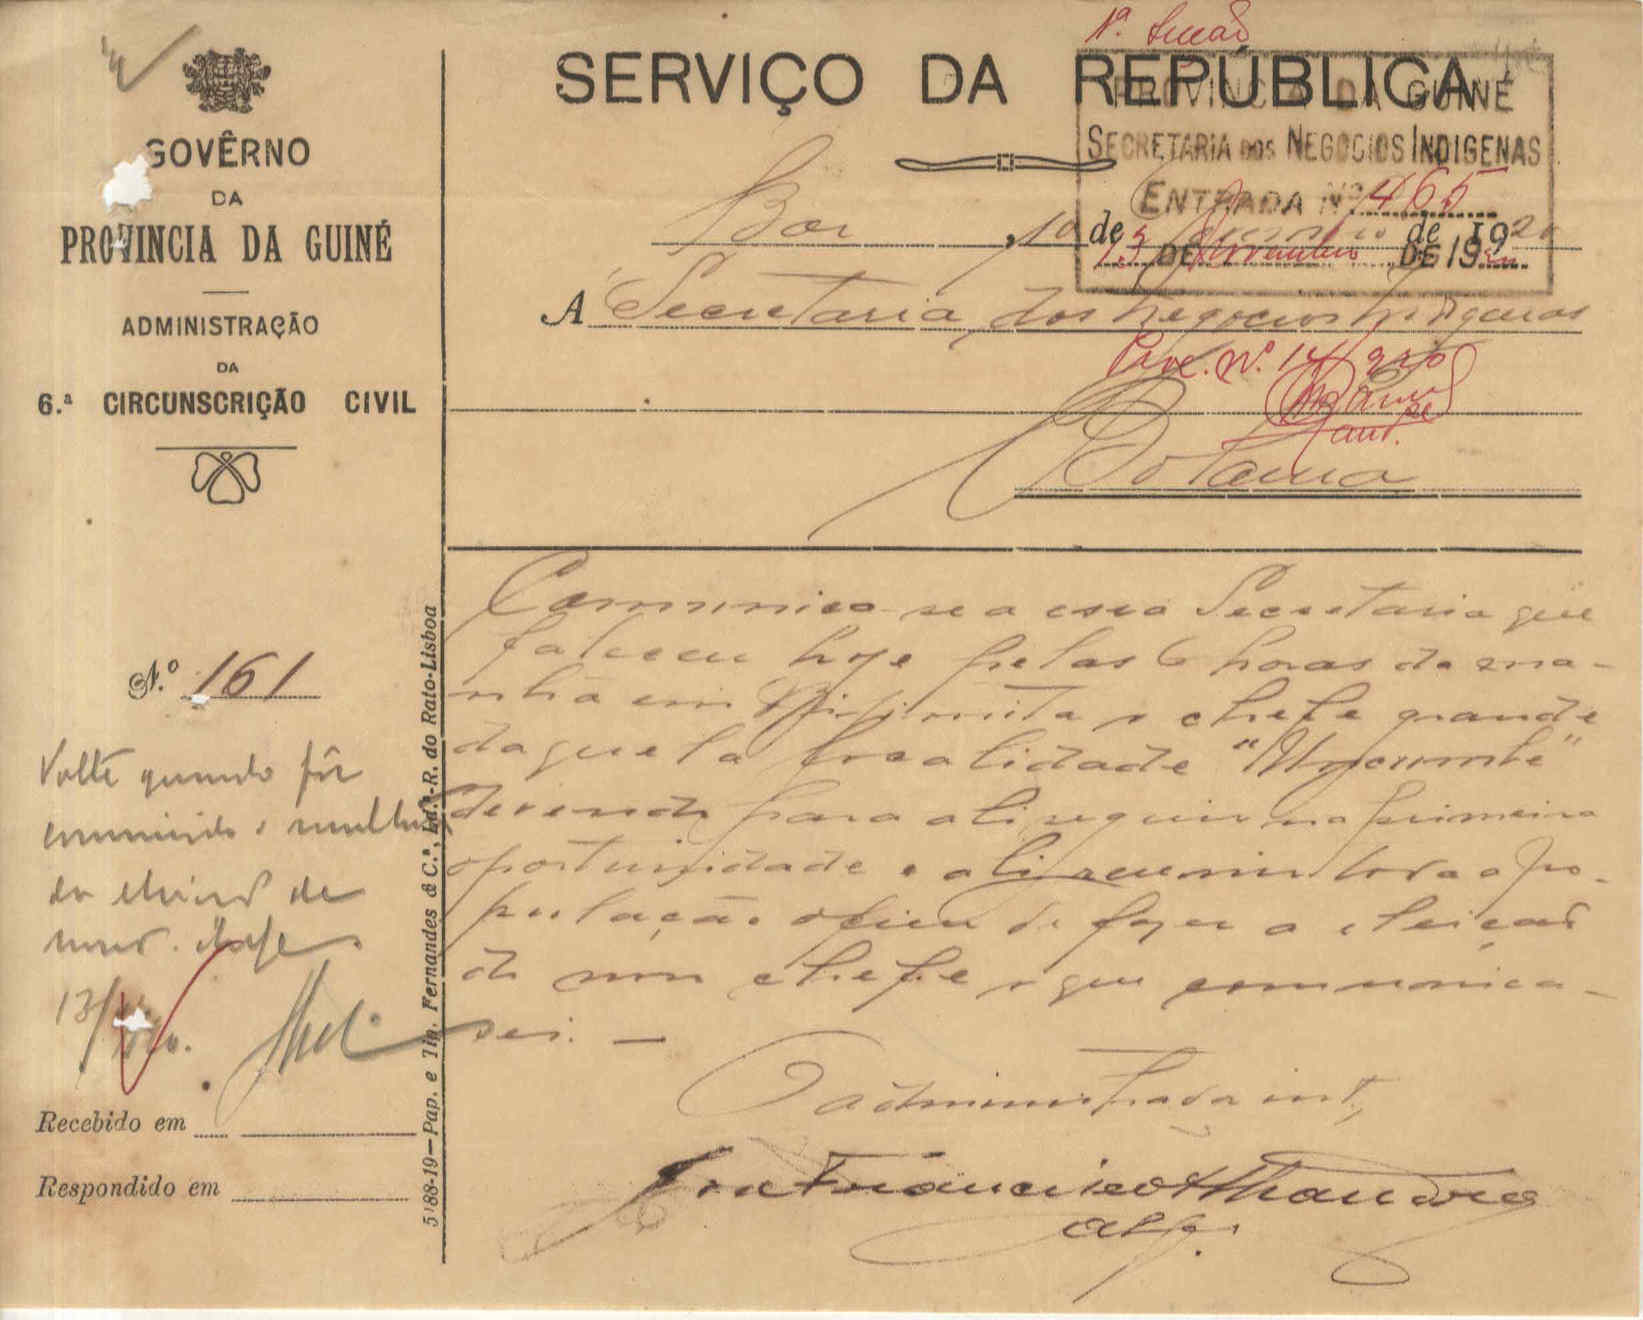 1ª Secção
SERVIÇO DA REPÚBLICA
GOVÊRNO
DA
PROVINCIA DA GUINÉ
ADMINISTRAÇÃO
DA
6.ª CIRCUNSCRIÇÃO CIVIL
PROVINCIA DA GUINÉ
SECRETARIA DOS NEGOCIOS INDIGENAS
ENTRADA Nº 465
15 DE Novembro DE 19
Bor, 10 de de 1920
A Secretaria dos Negocios Indigenas
Proc. Nº 14/920
Bolama
Nº 161
Comunico-se a essa Secretaria que
faleceu hoje pelas 6 horas da ma-
nhã em o chefe grande
daquela localidade
devendo para ali seguir na primeira
oportunidade e ali reunir toda a po-
pulação afim de fazer a eleição
do novo chefe o que comunica-
rei. —
O administrador int,
Francisco
alf.
Volte quando fôr
comunicado o resultado
da eleição do
novo chefe.
13/
Recebido em
Respondido em
5188-19—Pap. e Tip. Fernandes & C.ª, Ld.ª-R. do Rato-Lisboa